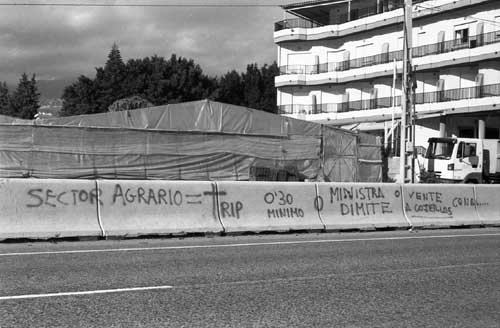 SECTOR AGRARIO = † RIP
O'30
MINIMO
O MINISTRA
DIMITE
O VENTE
A COJELLOS CONA...